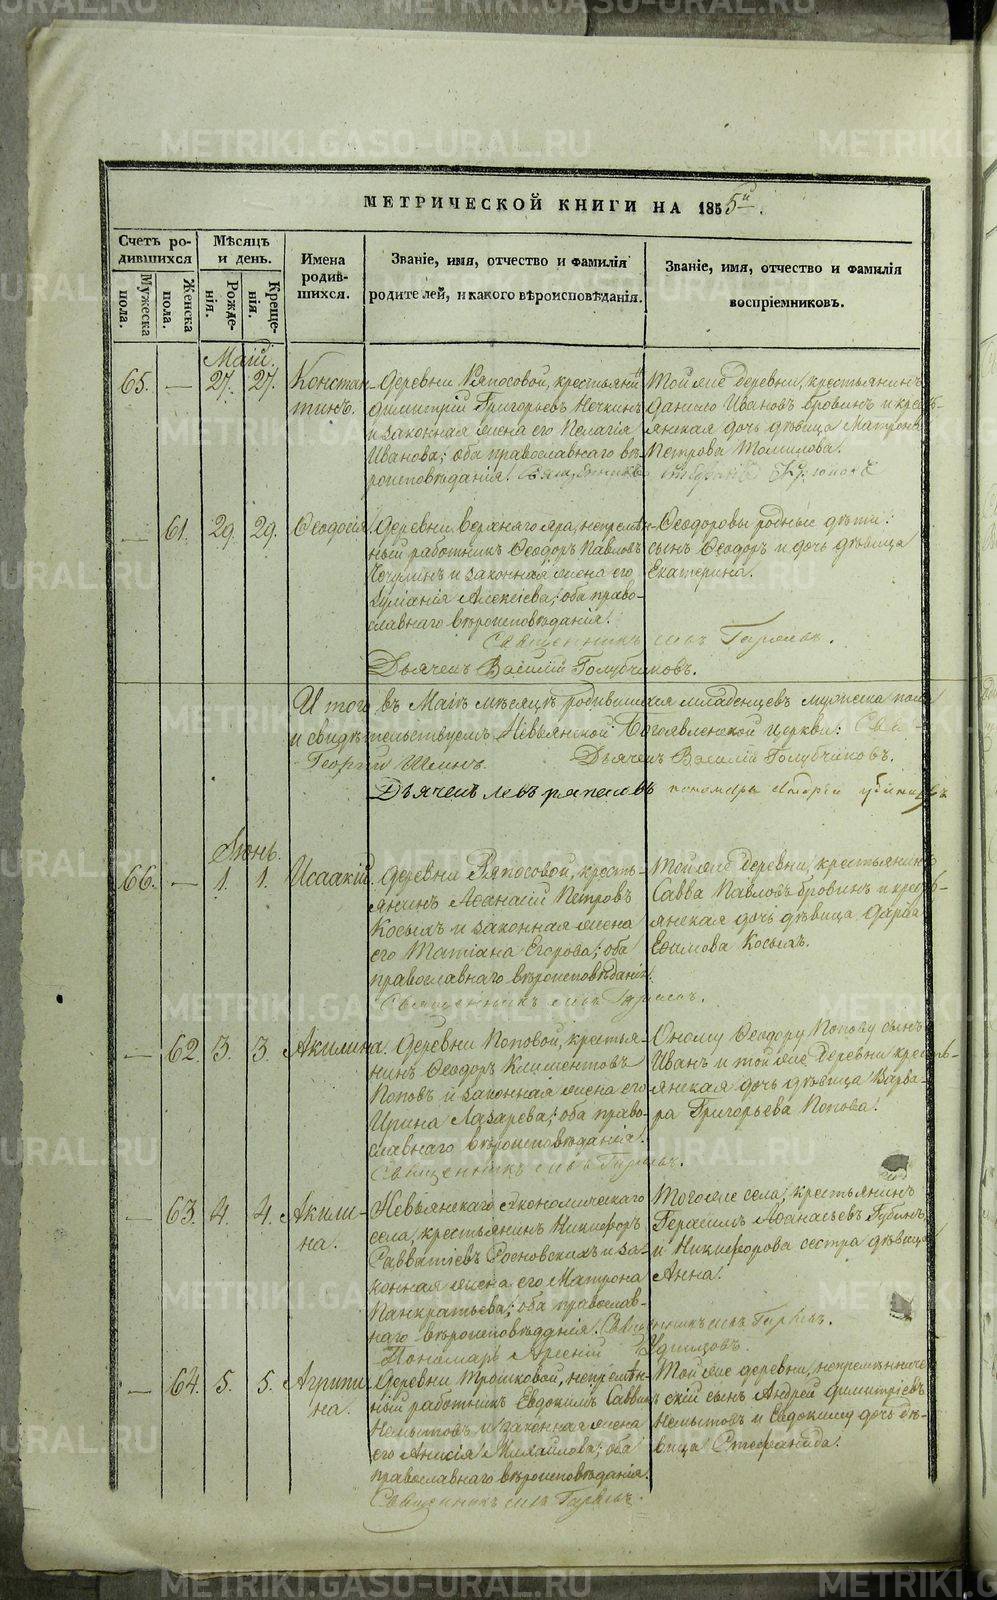 МЕТРИЧЕСКОЙ КНИГИ НА 1855й.
Счетъ ро-
дившихся
Мужеска
пола.
Женска
пола.
Мѣсяцъ
и день.
Рожде-
нія.
Креще-
нія.
Имена
родив-
шихся.
Званіе, имя, отчество и фамилія
родителей, и какого вѣроисповѣданія.
Званіе, имя, отчество и фамилія
воспріемниковъ.
Маій.
65. — 27. 27.
Констан-
тинъ.
Деревни Ряпосовой, крестьянинъ
Димитрій Григорьевъ Нечкинъ
и законная жена его Пелагія
Иванова; оба православнаго вѣ-
роисповѣданія.
Той же деревни, крестьянинъ
Данило Ивановъ Бровинъ и кресть-
янская дочь дѣвица Матрона
Петрова Томилова.
— 61. 29. 29.
Ѳеодосія.
Деревни Верхняго яра, непремѣн-
ный работникъ Ѳеодоръ Павловъ
и законная жена его
Іуліанія Алексіева; оба право-
славнаго вѣроисповѣданія.
Ѳеодоровы родные дѣти:
сынъ Ѳеодоръ и дочь дѣвица
Екатерина.
Священникъ
Дьячекъ Василій Голубчиковъ.
Итого въ Маіѣ мѣсяцѣ родившихся младенцевъ мужеска пола
и свидѣтельствуемъ Невьянской Богоявленской церкви:
Георгій
Дьячекъ Василій Голубчиковъ.
Дьячекъ Левъ
пономарь
Іюнь.
66. — 1. 1.
Исаакій.
Деревни Ряпосовой, кресть-
янинъ Аѳанасій Петровъ
Косыхъ и законная жена
его Татіана Егорова; оба
православнаго вѣроисповѣданія.
Священникъ
Той же деревни, крестьянинъ
Савва Павловъ Бровинъ и кресть-
янская дочь дѣвица Дарія
Ефимова Косыхъ.
— 62. 3. 3.
Акилина.
Деревни Поповой, крестья-
нинъ Ѳеодоръ Климентовъ
Поповъ и законная жена его
Ирина Лазарева; оба право-
славнаго вѣроисповѣданія.
Священникъ
Оному Ѳеодору Попову сынъ
Иванъ и той же деревни кресть-
янская дочь дѣвица Варва-
ра Григорьева Попова.
— 63. 4. 4.
Акили-
на.
Невьянскаго экономическаго
села, крестьянинъ Никифоръ
Савватіевъ Сосновскихъ и за-
конная жена его Матрона
Панкратьева; оба православ-
наго вѣроисповѣданія. Священникъ
Пономарь Арсеній Удинцовъ.
Того же села, крестьянинъ
Герасимъ Аѳанасьевъ Губинъ
и Никифорова сестра дѣвица
Анна.
— 64. 5. 5.
Агрипи-
на.
Деревни Трошковой, непремѣн-
ный работникъ Евдокимъ Саввинъ
Немытовъ и законная жена
его Анисія Михайлова; оба
православнаго вѣроисповѣданія.
Священникъ
Той же деревни, непремѣнниче-
скій сынъ Андрей Димитріевъ
Немытовъ и Евдокиму дочь дѣ-
вица Стефанида.
METRIKI.GASO-URAL.RU